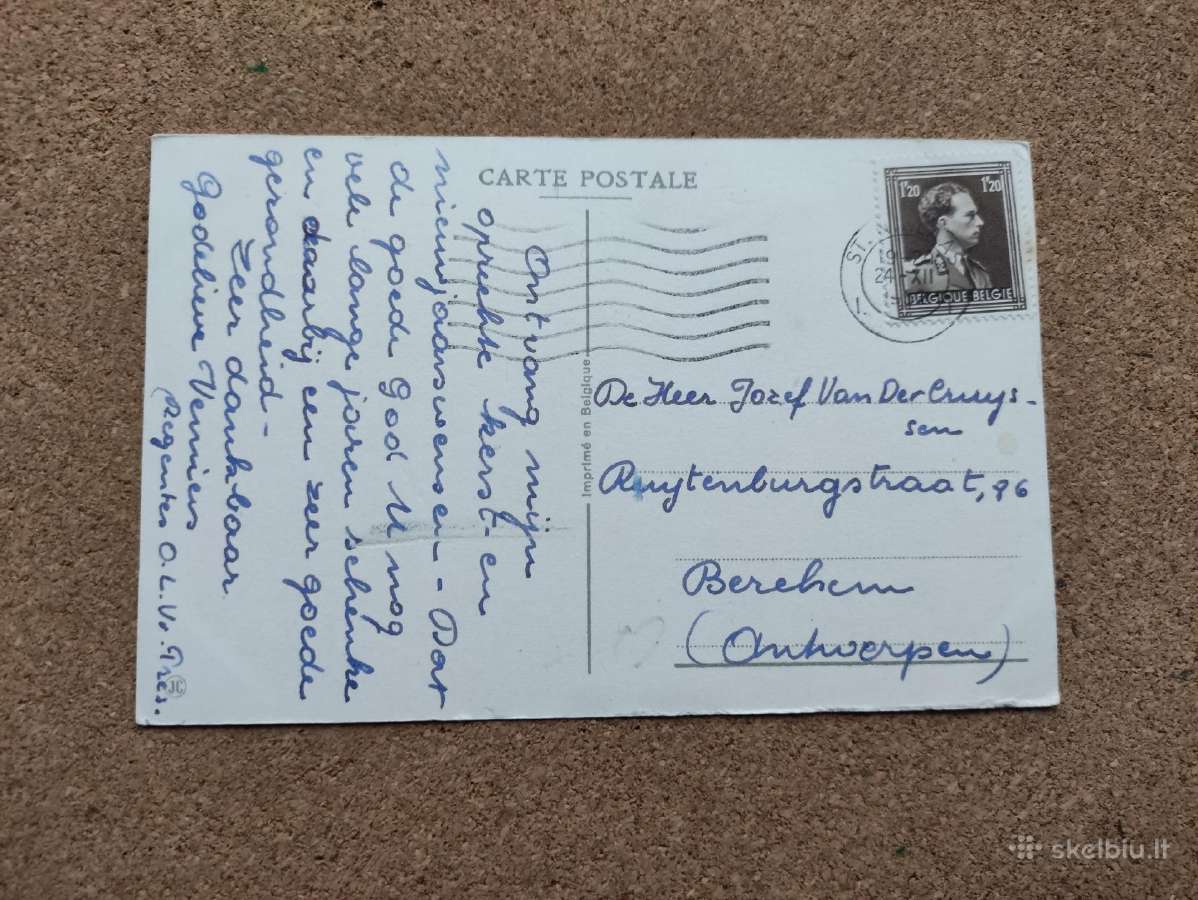 CARTE POSTALE
Ontvang mijn
oprechte kerst- en
nieuwjaarswensen - Dat
de goede God U nog
vele lange jaren schenke
en daarbij een zeer goede
gezondheid -
Zeer dankbaar
Godelieve Venniens
(Regentes O.L.V. Pres.
JC
Imprimé en Belgique
1F20 1F20
BELGIQUE BELGIE
ST.
19
24 XII
De Heer Jozef Van Der Cruys-
sen
Ruytenburgstraat, 96
Berchem
(Antwerpen)
skelbiu.lt